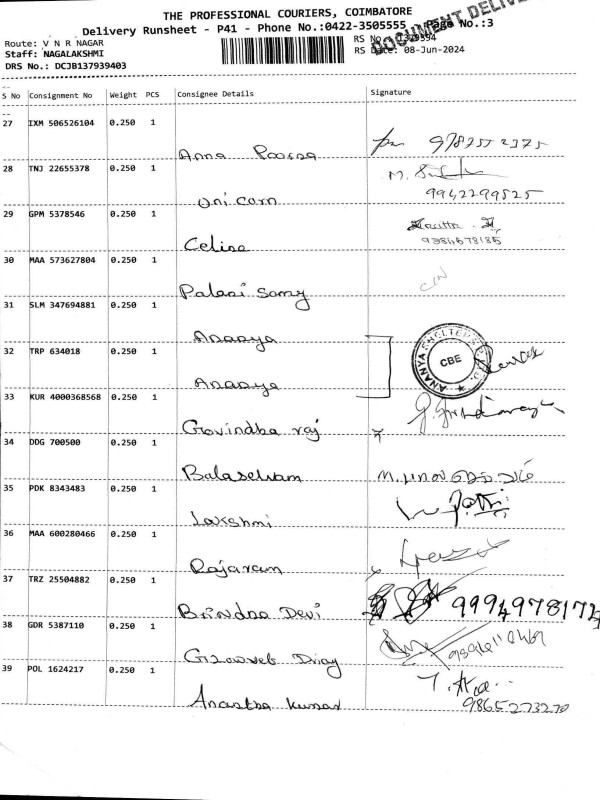 THE PROFESSIONAL COURIERS, COIMBATORE
Delivery Runsheet - P41 - Phone No.:0422-3505555 Page No.:3
DOCUMENT DELIVE
Route: V N R NAGAR RS No.
Staff: NAGALAKSHMI RS Date: 08-Jun-2024
DRS No.: DCJB137939403
S No Consignment No Weight PCS Consignee Details Signature
27 IXM 506526104 0.250 1
Anna Poorna
28 TNJ 22655378 0.250 1 M.
Uni Corn 9942299525
29 GPM 5378546 0.250 1
Celina 9384578185
30 MAA 573627804 0.250 1
Palani Samy
31 SLM 347694881 0.250 1
Ananya
32 TRP 634018 0.250 1 ANANYA SHELTERS CBE
Ananya
33 KUR 4000368568 0.250 1
Govindha raj
34 DDG 700500 0.250 1
Balaselvam
35 PDK 8343483 0.250 1
Lakshmi
36 MAA 600280466 0.250 1
Rajaram
37 TRZ 25504882 0.250 1
Brindha Devi 9994978174
38 GDR 5387110 0.250 1
39 POL 1624217 0.250 1
Anantha Kumar 9865273270